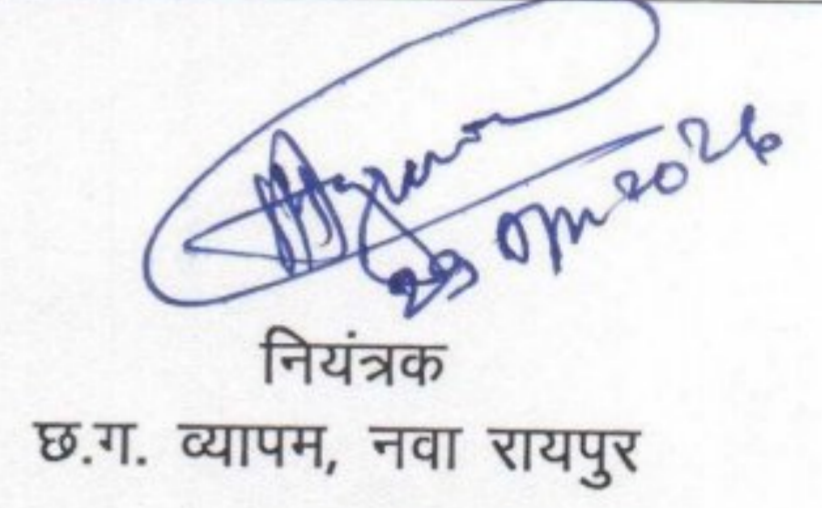 29 Apr 2026
नियंत्रक
छ.ग. व्यापम, नवा रायपुर